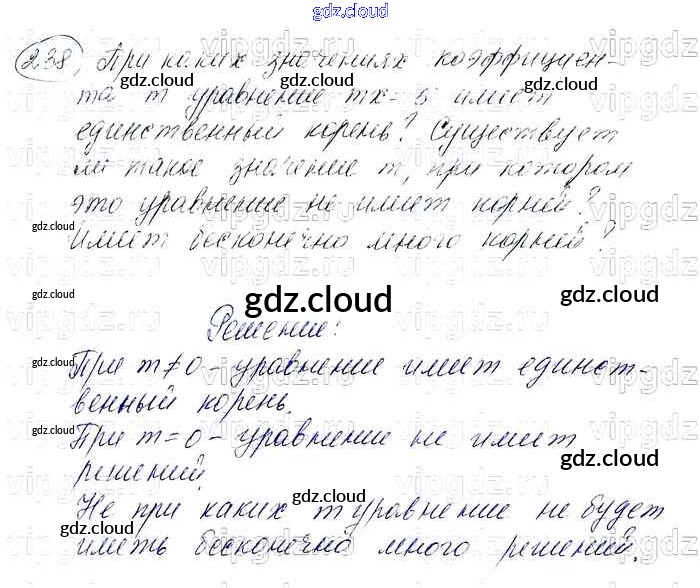 gdz.cloud
238, При каких значениях коэффициен-
gdz.cloud gdz.cloud
та m уравнение mx=5 имеет
единственный корень? Существует
gdz.cloud
ли такое значение m, при котором
gdz.cloud
это уравнение не имеет корней?
gdz.cloud
Имеет бесконечно много корней?
gdz.cloud gdz.cloud gdz.cloud
Решение:
gdz.cloud
При m≠0 - уравнение имеет единст-
венный корень.
gdz.cloud
При m=0 - уравнение не имеет
gdz.cloud
решений.
gdz.cloud
Не при каких m уровнение не будет
gdz.cloud gdz.cloud
иметь бесконечно много решений.